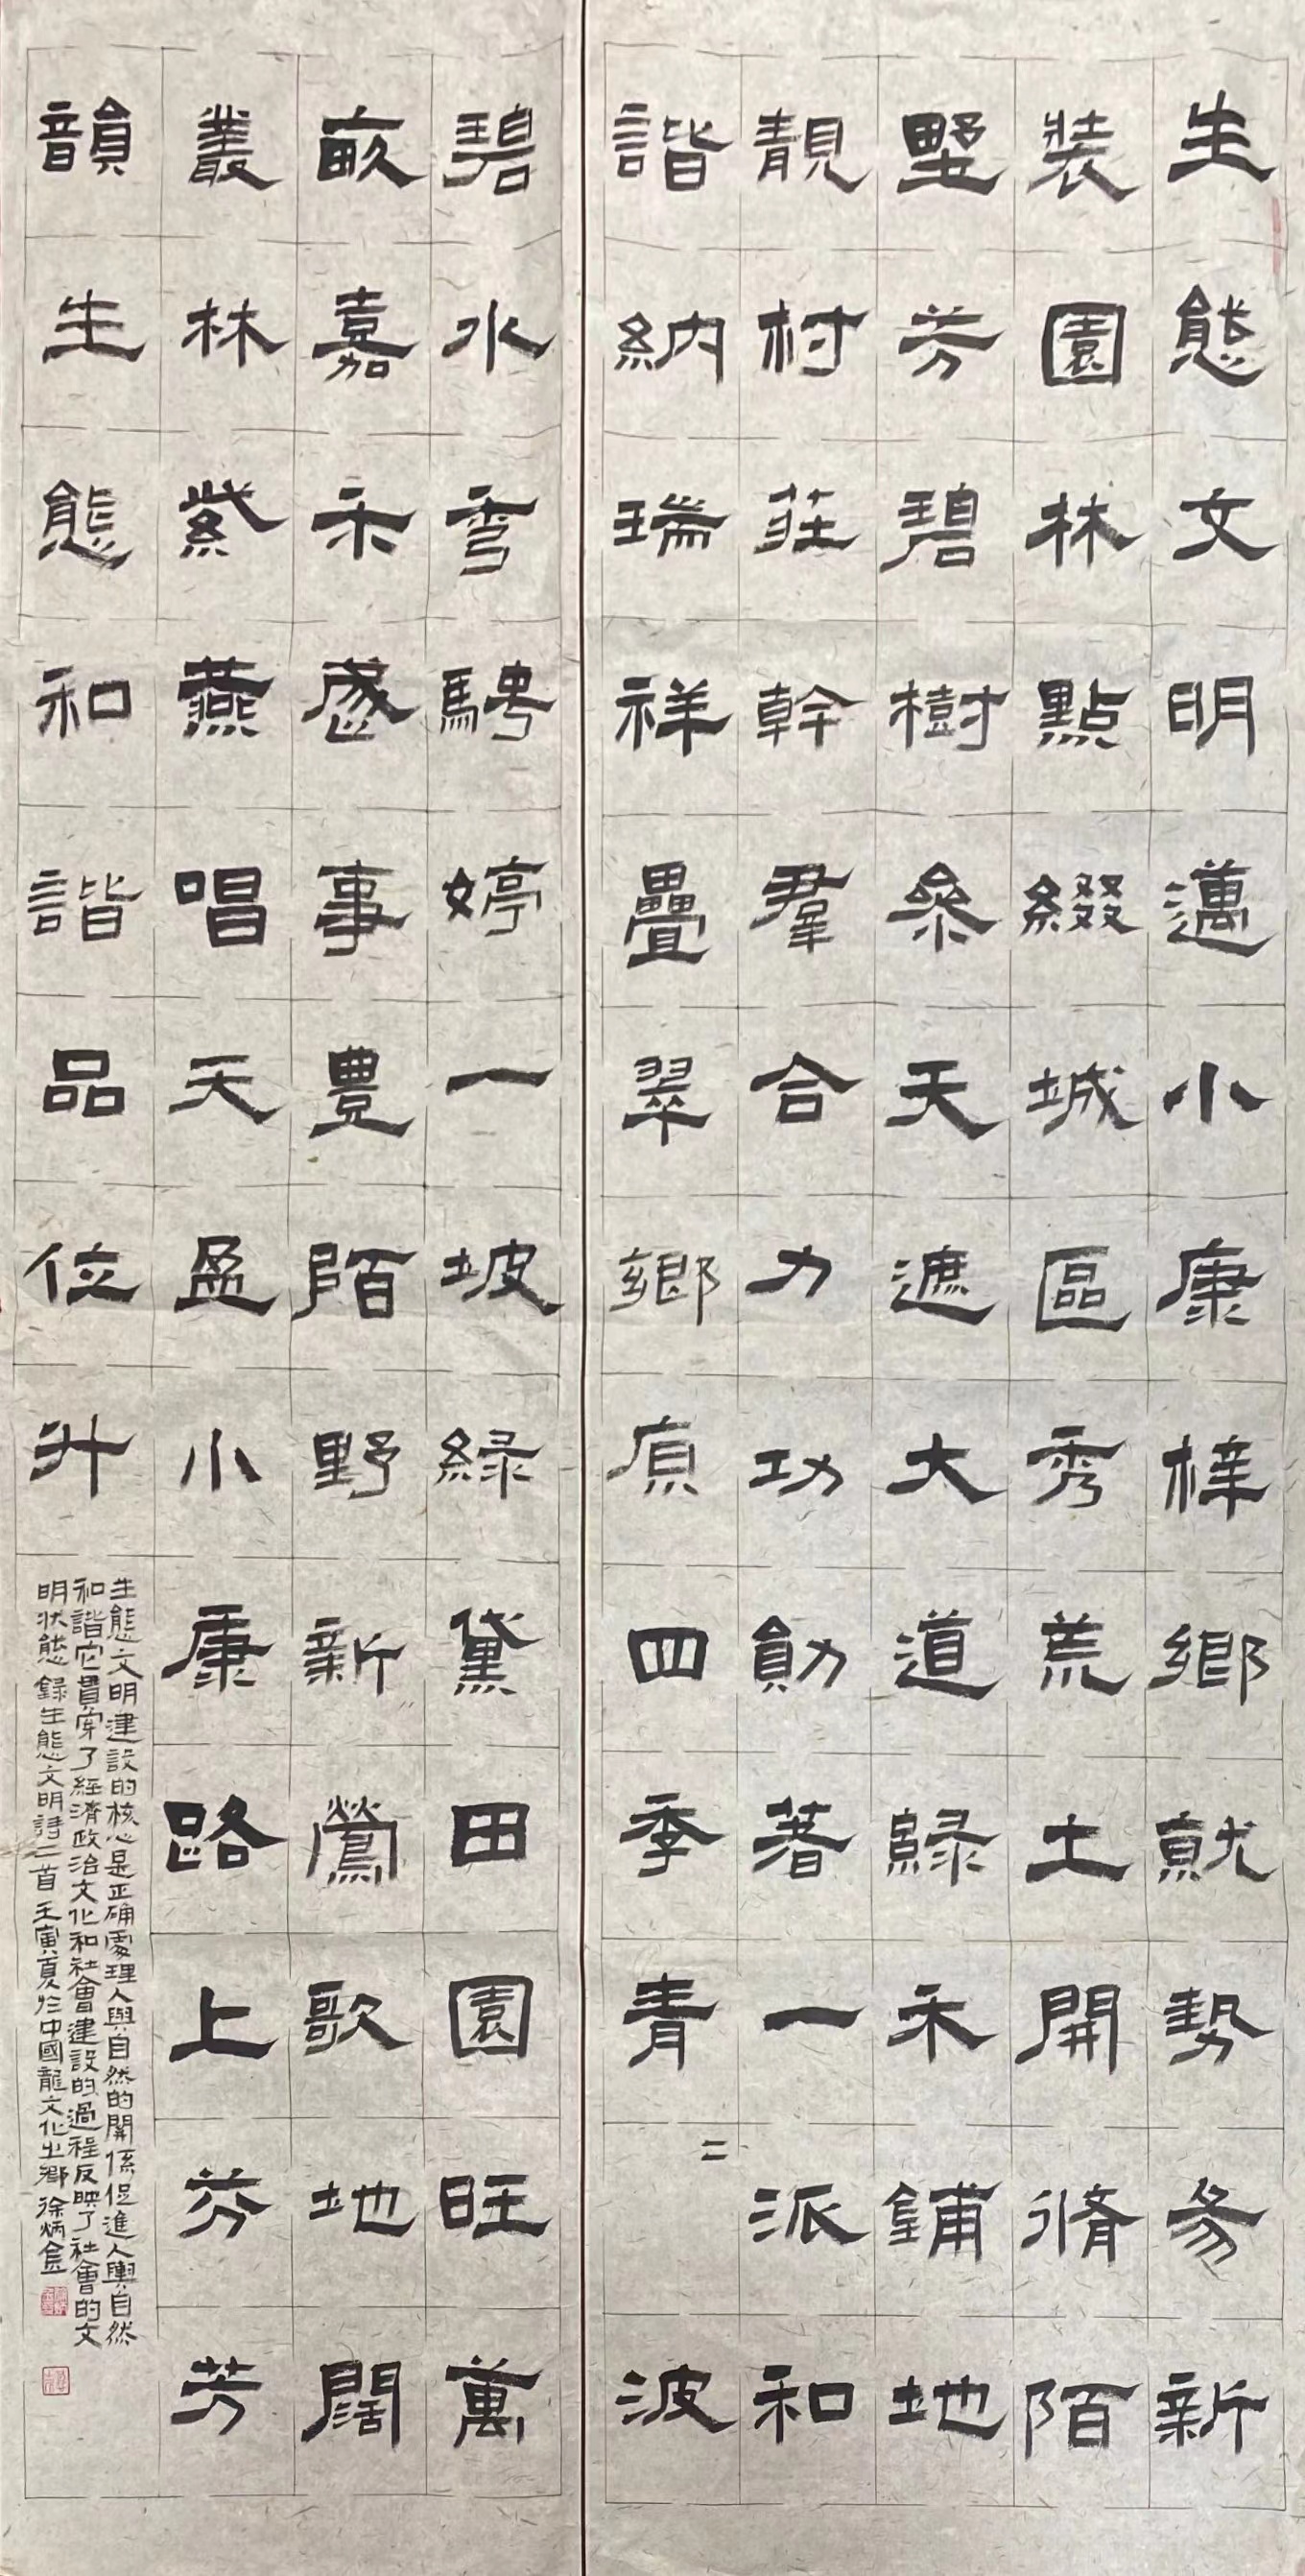 生態文明邁小康梓鄉就勢易新
裝園林點綴城區秀荒土開脩陌
墅芳碧樹參天遮大道綠禾鋪地
靚村莊幹羣合力功勛著一派和
諧納瑞祥疊翠鄉原四季青二波
碧水騁婷一坡綠黛田園旺萬
畝嘉禾事豊陌野新鶯歌地闊
叢林紫燕唱天盈小康路上芬芳
韻生態和諧品位升
生態文明建設的核心是正确處理人與自然的關係促進人與自然
和諧它貫穿了經濟政治文化和社會建設的過程反映了社會的文
明状態錄生態文明詩二首壬寅夏於中國龍文化之鄉徐炳金